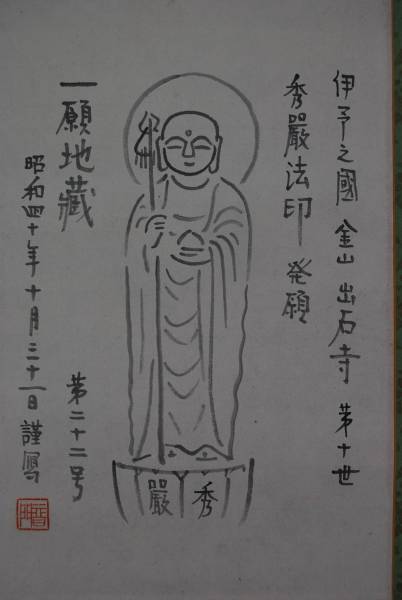 伊予之國 金山 出石寺 第十世
秀嚴法印 発願
秀嚴
一願地藏
第二十二号
昭和四十年十月三十一日 謹寫